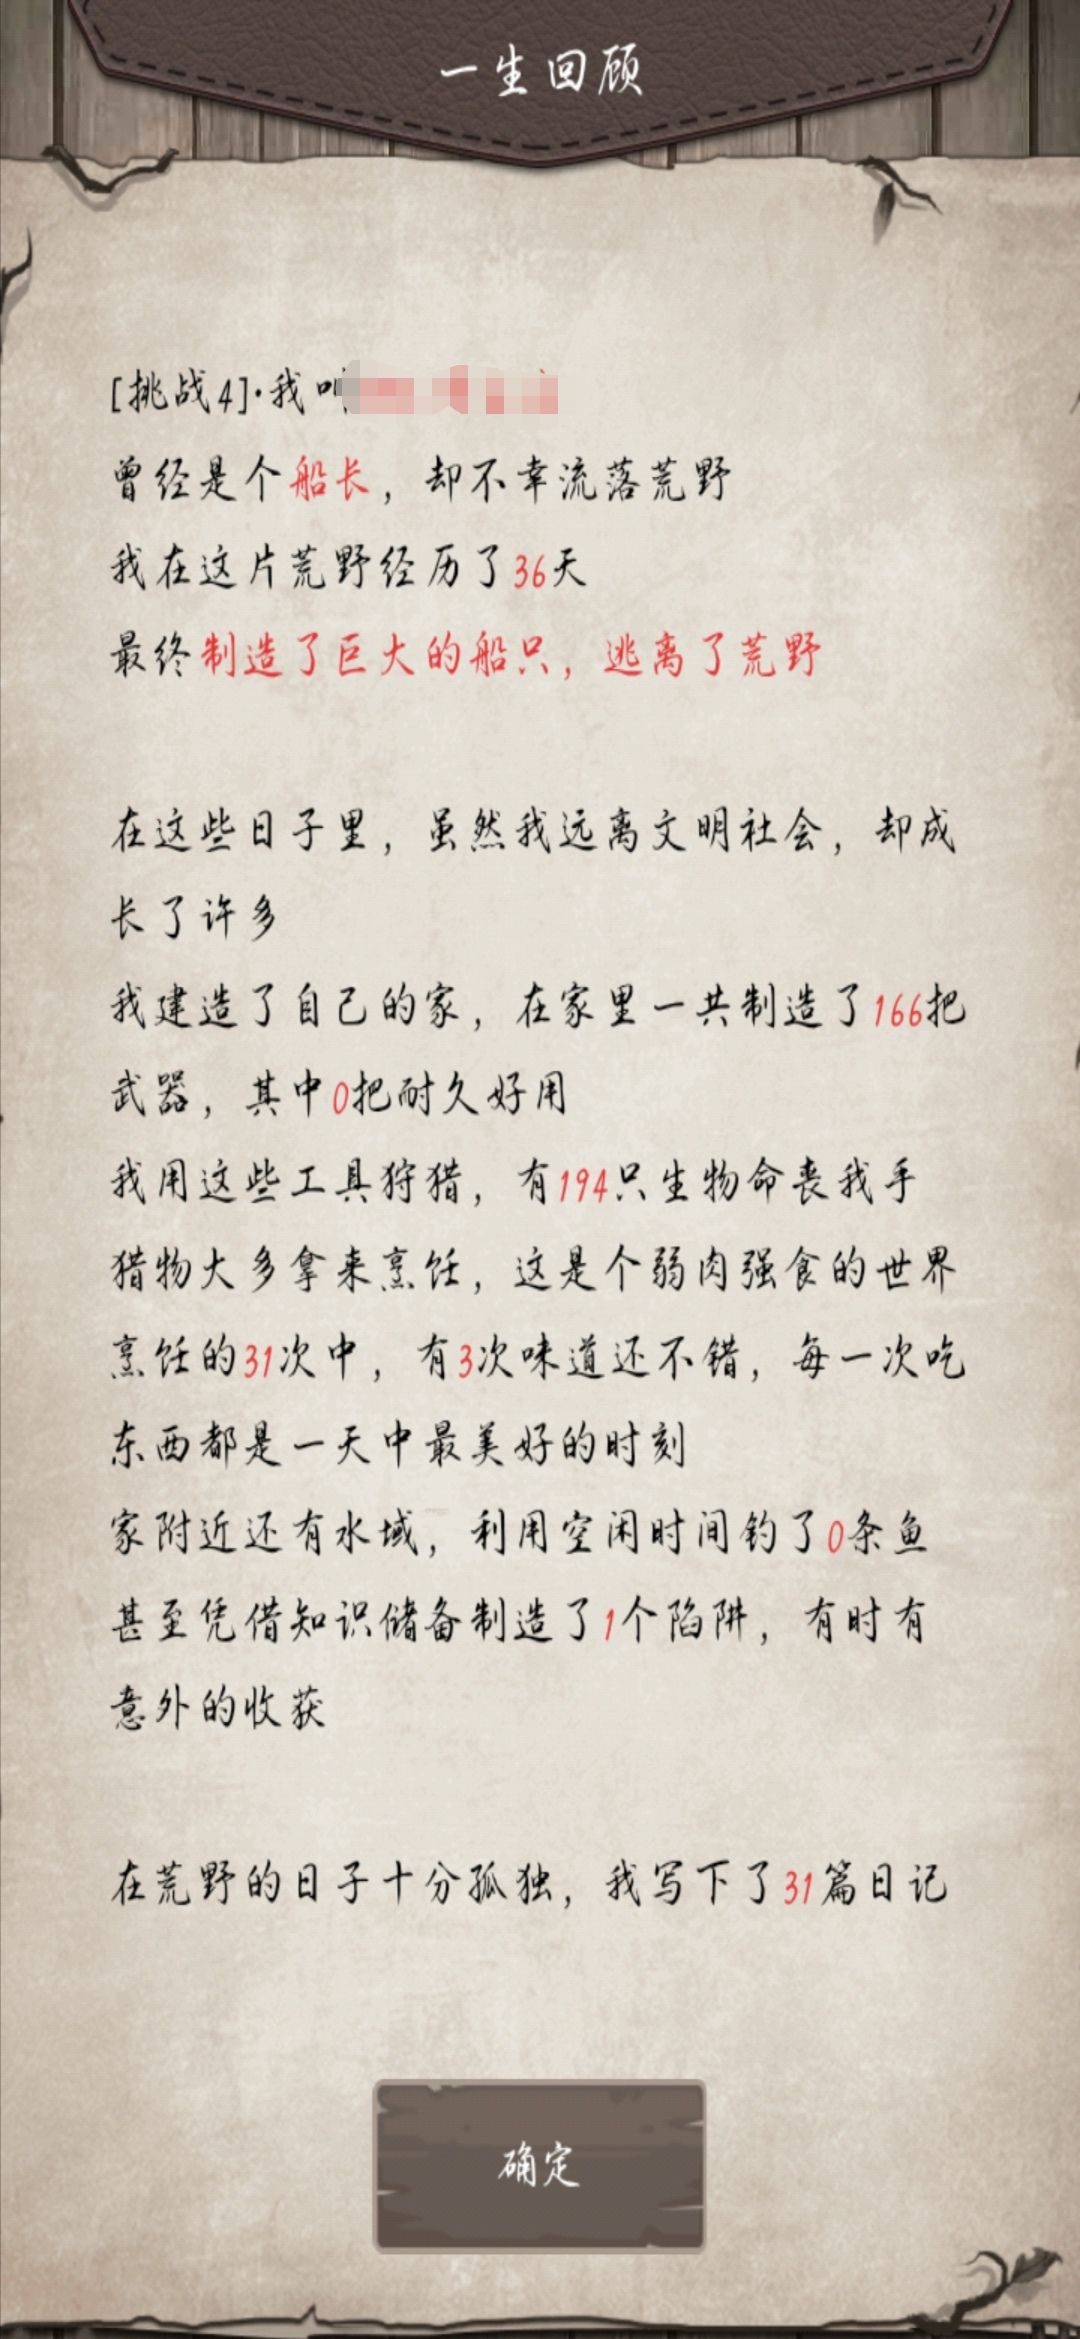 一生回顾
[挑战4]·我叫
曾经是个船长，却不幸流落荒野
我在这片荒野经历了36天
最终制造了巨大的船只，逃离了荒野
在这些日子里，虽然我远离文明社会，却成
长了许多
我建造了自己的家，在家里一共制造了166把
武器，其中0把耐久好用
我用这些工具狩猎，有194只生物命丧我手
猎物大多拿来烹饪，这是个弱肉强食的世界
烹饪的31次中，有3次味道还不错，每一次吃
东西都是一天中最美好的时刻
家附近还有水域，利用空闲时间钓了0条鱼
甚至凭借知识储备制造了1个陷阱，有时有
意外的收获
在荒野的日子十分孤独，我写下了31篇日记
确定